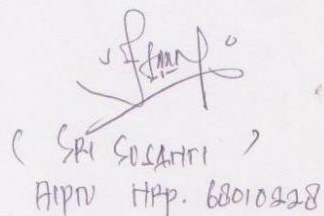 ( SRI SUSANTI )
AIPTU NRP. 68010228